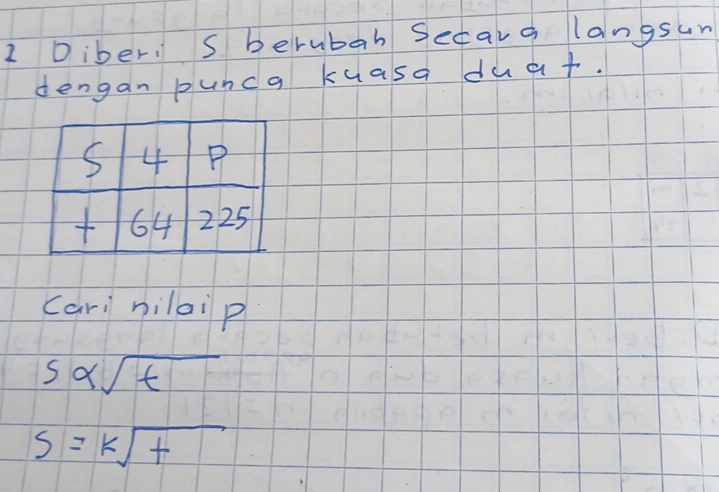 2 Diberi S berubah Secara langsun
dengan punca kuasa dua t.
S 4 P
t 64 225
Cari nilai p
S ∝ √t
S = k√t